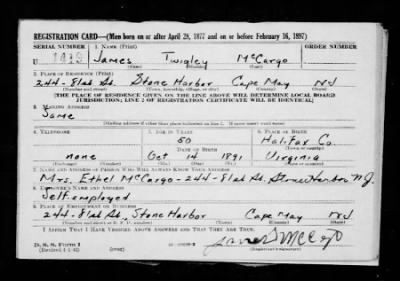 REGISTRATION CARD—(Men born on or after April 28, 1877 and on or before February 16, 1897)
SERIAL NUMBER 1. NAME (Print) ORDER NUMBER
U 1413 James Twigley McCargo
2. PLACE OF RESIDENCE (Print)
244 - 81st St. Stone Harbor Cape May NJ
(Number and street) (Town, township, village, or city) (County) (State)
[THE PLACE OF RESIDENCE GIVEN ON THE LINE ABOVE WILL DETERMINE LOCAL BOARD
JURISDICTION; LINE 2 OF REGISTRATION CERTIFICATE WILL BE IDENTICAL]
3. MAILING ADDRESS
Same
[Mailing address if other than place indicated on line 2. If same insert word same]
4. TELEPHONE 5. AGE IN YEARS 6. PLACE OF BIRTH
50 Halifax Co.
DATE OF BIRTH (Town or county)
none Oct 14 1891 Virginia
(Exchange) (Number) (Mo.) (Day) (Yr.) (State or country)
7. NAME AND ADDRESS OF PERSON WHO WILL ALWAYS KNOW YOUR ADDRESS
Mrs. Ethel McCargo - 244 - 81st St. Stone Harbor N.J.
8. EMPLOYER'S NAME AND ADDRESS
Self employed
9. PLACE OF EMPLOYMENT OR BUSINESS
244 - 81st St., Stone Harbor Cape May NJ
(Number and street or R. F. D. number) (Town) (County) (State)
I AFFIRM THAT I HAVE VERIFIED ABOVE ANSWERS AND THAT THEY ARE TRUE.
D. S. S. Form 1
(Revised 4-1-42) (over)